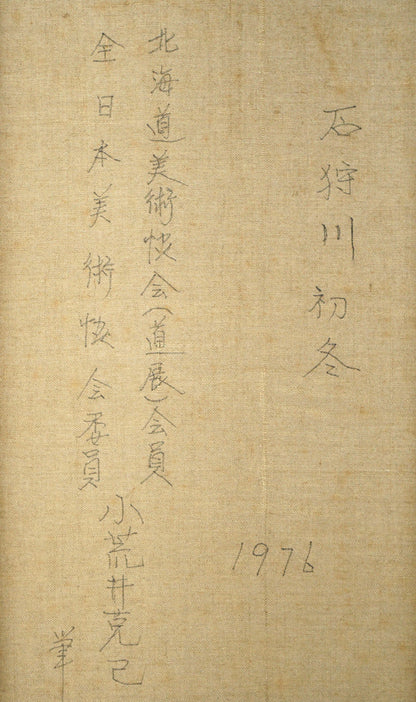 石狩川初冬
1976
北海道美術協会(道展)会員
全日本美術協会委員
小荒井克己
筆